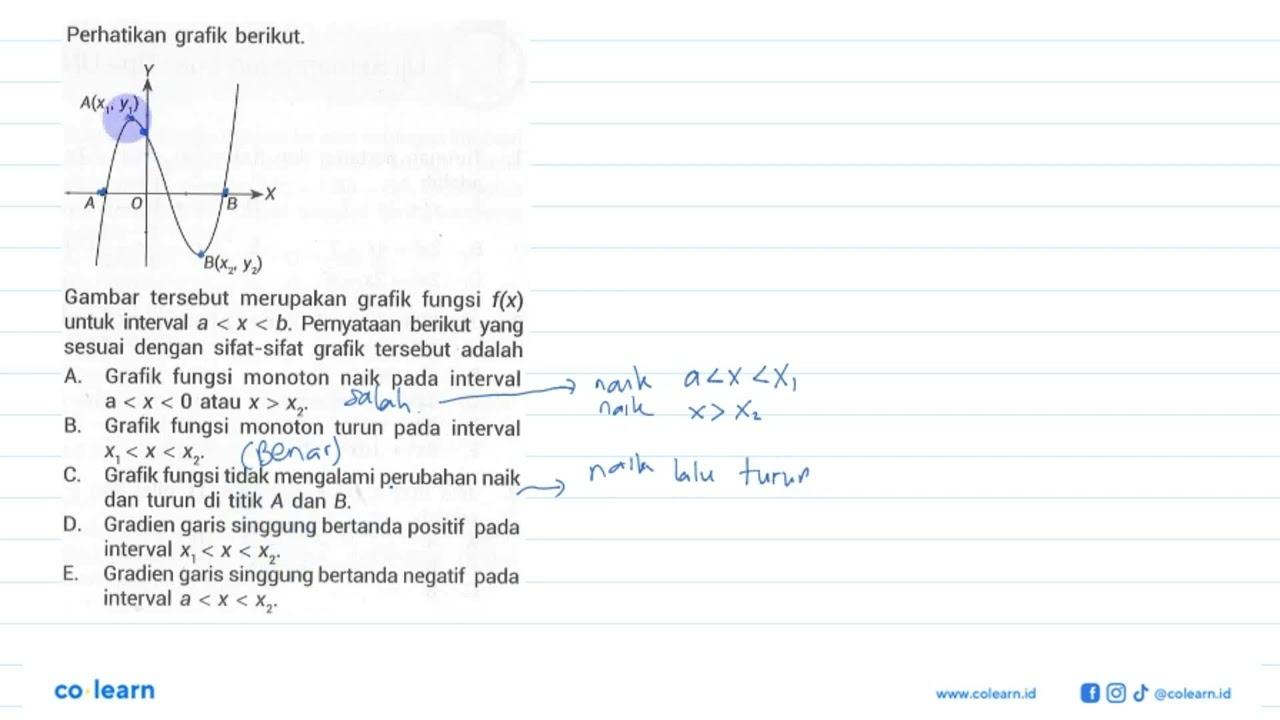 Perhatikan grafik berikut.
Y
A(x₁, y₁)
A O B X
B(x₂, y₂)
Gambar tersebut merupakan grafik fungsi f(x)
untuk interval a < x < b. Pernyataan berikut yang
sesuai dengan sifat-sifat grafik tersebut adalah
A. Grafik fungsi monoton naik pada interval
a < x < 0 atau x > x₂. salah. naik a < x < x₁
naik x > x₂
B. Grafik fungsi monoton turun pada interval
x₁ < x < x₂. (Benar)
C. Grafik fungsi tidak mengalami perubahan naik
dan turun di titik A dan B. naik lalu turun
D. Gradien garis singgung bertanda positif pada
interval x₁ < x < x₂.
E. Gradien garis singgung bertanda negatif pada
interval a < x < x₂.
co learn www.colearn.id @colearn.id